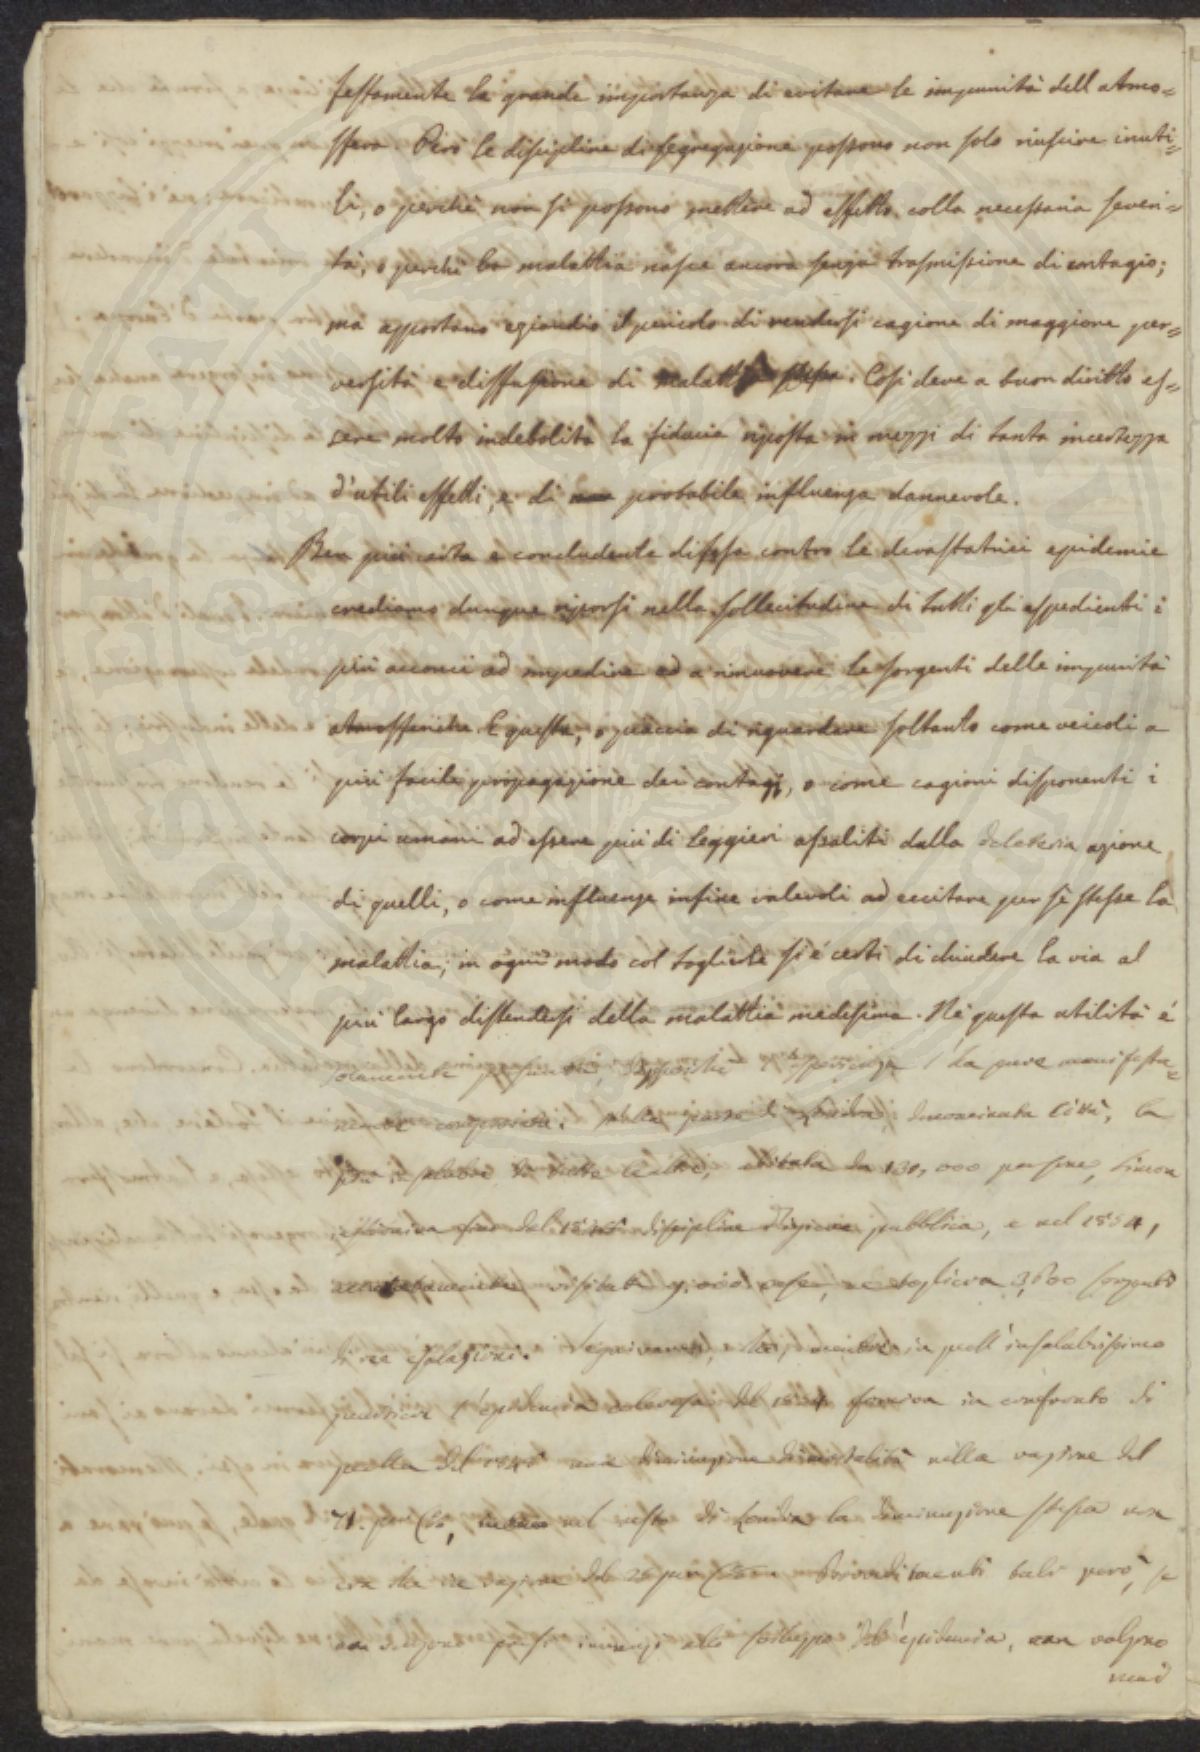 festamente la grande importanza di evitare le impurità dell'atmo=
sfera. Però le discipline di segregazione possono non solo riuscire inuti=
li, o perché non si possono mettere ad effetto colla necessaria severi=
tà, o perché la malattia nasce ancora senza trasmissione di contagio;
ma apportano eziandio il pericolo di rendersi cagione di maggiore per=
versità e diffusione di malattia stessa. Così deve a buon diritto es=
sere molto indebolita la fiducia riposta in mezzi di tanta incertezza
d'utili effetti, e di probabile influenza dannevole.
Ben più certa e concludente difesa contro le devastatrici epidemie
crediamo dunque riporsi nella sollecitudine di tutti gli espedienti i
più acconci ad impedire ed a rimuovere le sorgenti delle impurità
atmosferiche. E queste, o piaccia di riguardare soltanto come veicoli a
più facile propagazione dei contagi, o come cagioni disponenti i
corpi umani ad essere più di leggieri assaliti dalla deleteria azione
di quelli, o come influenze infine valevoli ad eccitare per sé stesse la
malattia; in ogni modo col toglierle si è certi di chiudere la via al
più largo distendersi della malattia medesima. Né questa utilità è
solamente l'esperienza l'ha pure manifesta=
mente comprovata. Nella parte di Londra denominata Città, la
più di tutte le altre, abitata da 130,000 persone, Simon
istituiva fino dal discipline d'igiene pubblica, e nel 1854,
visitate 9,000 case, ne toglieva 3,500 sorgenti
di ree esalazioni. mentre in quell'insalubrissimo
quartiere l'epidemia colerosa del 1854 forniva in confronto di
quella del una diminuzione di mortalità nella ragione del
71. per Cto, nel resto di Londra la diminuzione stessa non
era che in ragione del 25 per Cento. Provvedimenti tali però, se
non vengono presi innanzi allo sviluppo dell'epidemia, non valgono